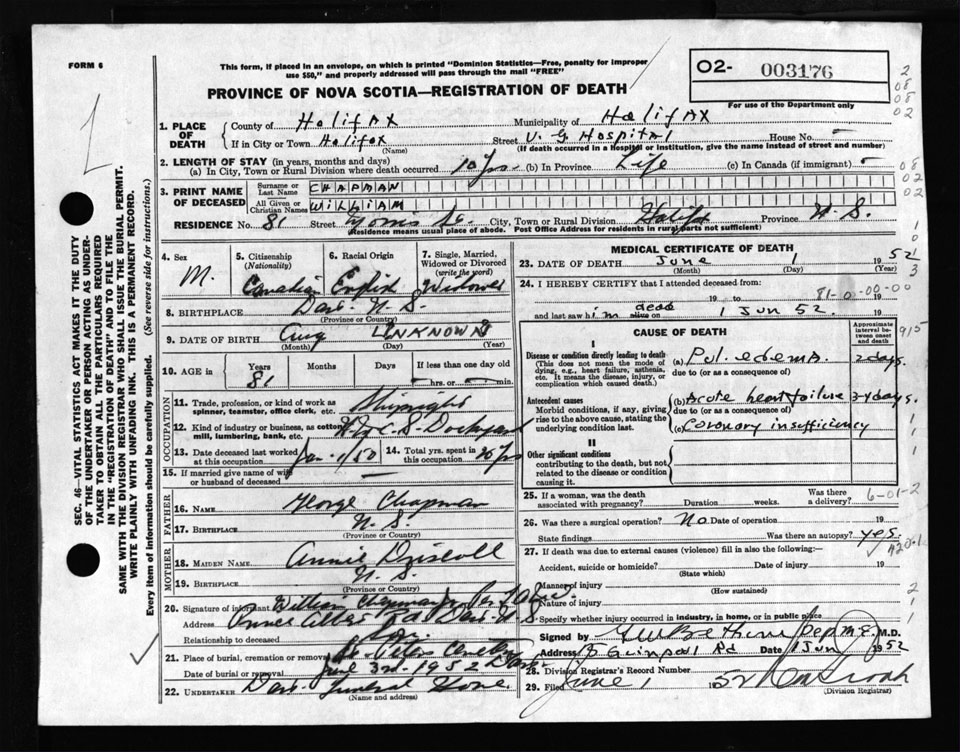 FORM 6
This form, if placed in an envelope, on which is printed "Dominion Statistics—Free, penalty for improper
use $50," and properly addressed will pass through the mail "FREE"
PROVINCE OF NOVA SCOTIA—REGISTRATION OF DEATH
O2- 003176
For use of the Department only
1. PLACE OF DEATH
County of Halifax Municipality of Halifax
If in City or Town Halifax Street V. G Hospital House No. -
(Name) (If death occurred in a Hospital or institution, give the name instead of street and number)
2. LENGTH OF STAY (in years, months and days)
(a) In City, Town or Rural Division where death occurred 10 yrs (b) In Province Life (c) In Canada (if immigrant) -
3. PRINT NAME OF DECEASED
Surname or Last Name CHAPMAN
All Given or Christian Names WILLIAM
RESIDENCE No. 81 Street City, Town or Rural Division Halifax Province N. S.
(Residence means usual place of abode. Post Office Address for residents in rural parts not sufficient)
4. Sex M.
5. Citizenship (Nationality) Canadian
6. Racial Origin English
7. Single, Married, Widowed or Divorced (write the word) Widower
8. BIRTHPLACE Dart N. S.
(Province or Country)
9. DATE OF BIRTH Aug Unknown
(Month) (Day) (Year)
10. AGE in Years 81 Months Days If less than one day old
hrs. or min.
OCCUPATION
11. Trade, profession, or kind of work as
spinner, teamster, office clerk, etc. Shipwright
12. Kind of industry or business, as cotton
mill, lumbering, bank, etc. Dockyard
13. Date deceased last worked at this occupation Jan. 1/50
14. Total yrs. spent in this occupation
15. If married give name of wife
or husband of deceased
FATHER
16. NAME George Chapman
17. BIRTHPLACE N. S.
(Province or Country)
MOTHER
18. MAIDEN NAME Annie Driscoll
19. BIRTHPLACE N. S.
(Province or Country)
20. Signature of informant William Chapman
Address Prince Albert Rd Dart. N. S.
Relationship to deceased Son
21. Place of burial, cremation or removal St. Peters Cemetery
Date of burial or removal June 3rd. 1952 Dart
22. UNDERTAKER Dart. Funeral Home
(Name and address)
MEDICAL CERTIFICATE OF DEATH
23. DATE OF DEATH June 1 1952
(Month) (Day) (Year)
24. I HEREBY CERTIFY that I attended deceased from:
19 to 81-0-00-00 19
and last saw him alive on dead 1 Jun 52. 19
CAUSE OF DEATH
Approximate interval between onset and death
I
Disease or condition directly leading to death
(This does not mean the mode of dying, e.g., heart failure, asthenia, etc. It means the disease, injury, or complication which caused death.)
(a) Pul. edema. 2 days.
due to (or as a consequence of)
Antecedent causes
Morbid conditions, if any, giving rise to the above cause, stating the underlying condition last.
(b) Acute heart failure 3-4 days.
due to (or as a consequence of)
(c) Coronary insufficiency
II
Other significant conditions
contributing to the death, but not related to the disease or condition causing it.
25. If a woman, was the death associated with pregnancy? Duration weeks. Was there a delivery? 6-01-2
26. Was there a surgical operation? No Date of operation 19
State findings Was there an autopsy? yes.
420.1
27. If death was due to external causes (violence) fill in also the following:—
Accident, suicide or homicide? Date of injury 19
(State which)
Manner of injury
(How sustained)
Nature of injury
Specify whether injury occurred in industry, in home, or in public place
Signed by Dep M.E. M.D.
Address Quinpool Rd Date 1 Jun 1952
28. Division Registrar's Record Number
29. Filed June 1 1952
(Division Registrar)
SEC. 46—VITAL STATISTICS ACT MAKES IT THE DUTY
OF THE UNDERTAKER OR PERSON ACTING AS UNDER-
TAKER TO OBTAIN ALL THE PARTICULARS REQUIRED
IN THE "REGISTRATION OF DEATH" AND TO FILE THE
SAME WITH THE DIVISION REGISTRAR WHO SHALL ISSUE THE BURIAL PERMIT.
WRITE PLAINLY WITH UNFADING INK. THIS IS A PERMANENT RECORD.
Every item of information should be carefully supplied. (See reverse side for instructions.)